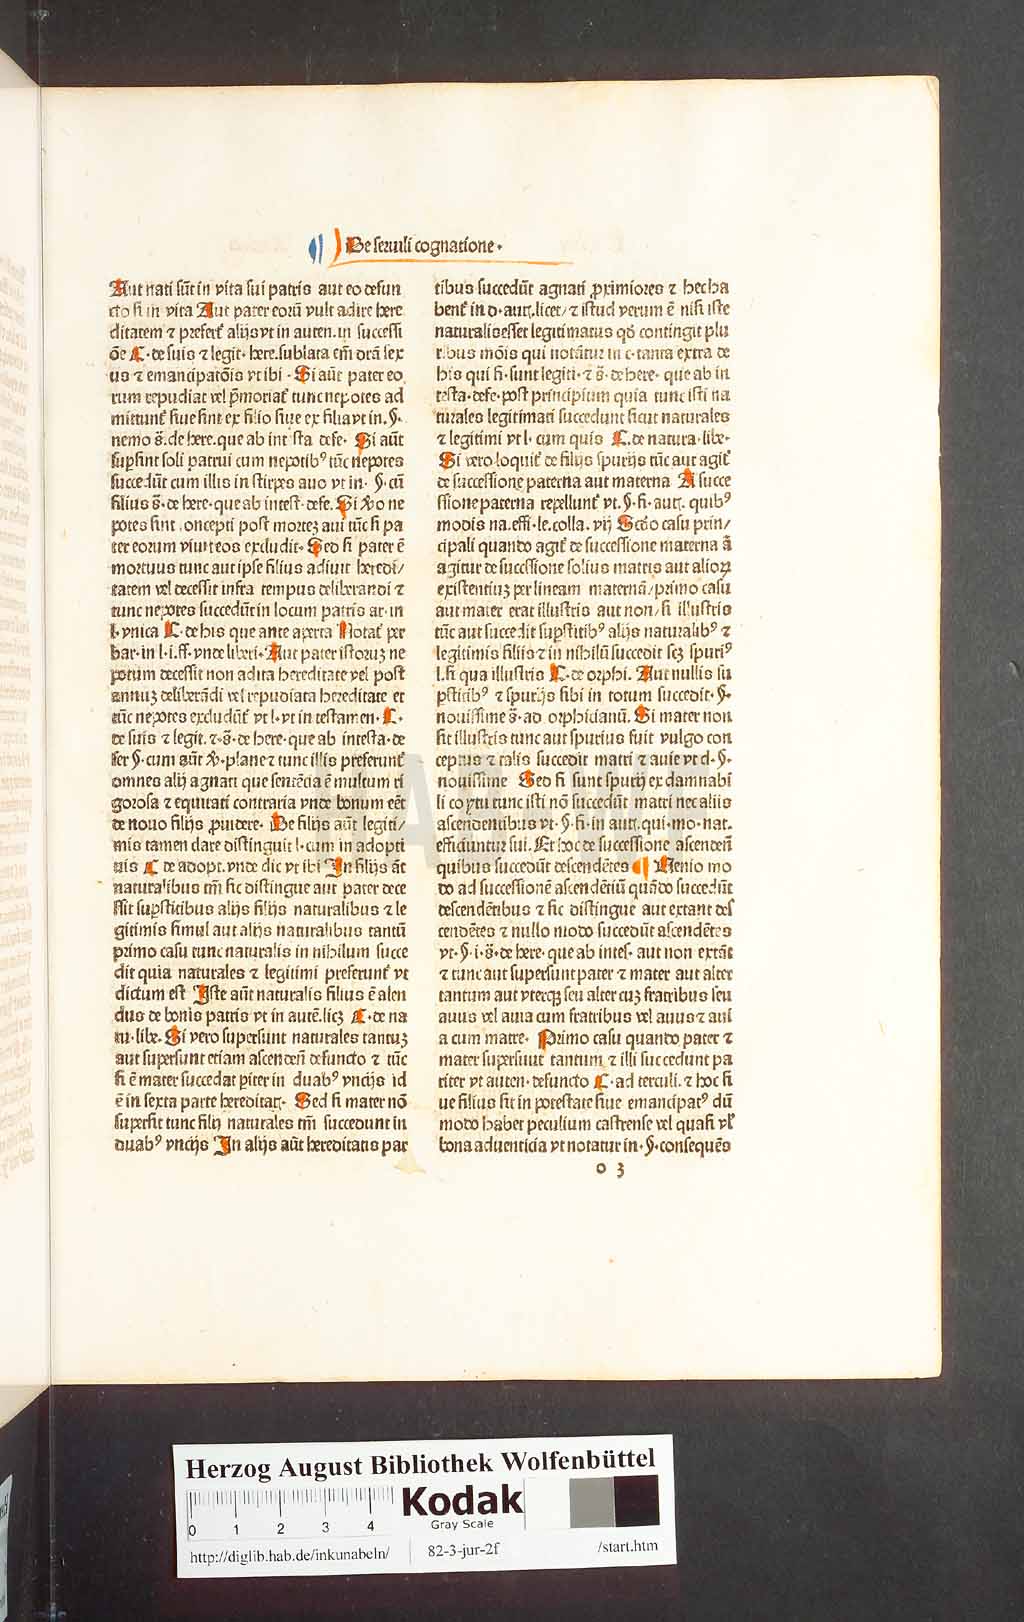 De seruili cognatione·
Aut nati sūt in vita sui patris aut eo defun
cto si in vita Aut pater eorū vult adire here
ditatem ⁊ prefert᷑ alijs vt in auten. in successi
ōe C· de suis ⁊ legit· here. sublata em̄ dr̄a sex
us ⁊ emancipatōis vt ibi · Si aūt pater eo
rum repudiat vel p̄moriat᷑ tunc nepotes ad
mittunt᷑ siue sint ex filio siue ex filia vt in. §·
nemo s̄. de here. que ab int sta defe· Si aūt
sup̱sint soli patrui cum nepotibꝰ tūc nepotes
succedūt cum illis in stirpes auo vt in· §· cū
filius s̄· de here· que ab intest· defe. Si v̊o ne
potes sint .oncepti post morteʒ aui tūc si pa
ter eorum viuit eos excludit· Sed si pater ē
mortuus tunc aut ipse filius adiuit heredi/
tatem vel decessit infra tempus deliberandi ⁊
tunc nepotes succedūt in locum patris ar· in
l· vnica C· de his que ante aperta Notat᷑ per
bar· in l· i. ff· vnde liberi· Aut pater istoruʒ ne
potum decessit non adita hereditate vel post
annuʒ deliberādi vel repudiata hereditate et
tūc nepotes excludūt᷑ vt l· vt in testamen· C·
de suis ⁊ legit. ⁊·s̄· de here· que ab intesta· de
fer §· cum aūt v̊· plane ⁊ tunc illis preferunt᷑
omnes alij agnati que sentēcia ē multum ri
gorosa ⁊ equitati contraria vnde bonum eēt
de nouo filijs ꝓuidere· De filijs aūt legiti/
mis tamen date distinguit l· cum in adopti
uis C de adopt. vnde dic vt ibi In filijs āt
naturalibus tm̄ sic distingue aut pater dece
ssit sup̱stitibus alijs filijs naturalibus ⁊ le
gitimis simul aut alijs naturalibus tantū
primo casu tunc naturalis in nihilum succe
dit quia naturales ⁊ legitimi preferunt᷑ vt
dictum est Iste aūt naturalis filius ē alen
dus de bonis patris vt in autē. licʒ C· de na
tu· libe· Si vero supersunt naturales tantuʒ
aut supersunt etiam ascendeñ defuncto ⁊ tūc
si ē mater succedat p̱iter in duabꝰ vncijs id
ē in sexta parte hereditat̨· Sed si mater nō
superfit tunc filij naturales tm̄ succedunt in
duabꝰ vncijs In alijs aūt hereditatis par
tibus succedūt agnati ꝓximiores ⁊ hec ha
bent᷑ in d· aut̨. licet/ ⁊ istud verum ē nisi iste
naturalis esset legitimatus qd̄ contingit plu
ribus mōis qui notātur in c· tanta extra de
his qui fi· sunt legiti· ⁊ s̄· de here· que ab in
testa· defe· post principium quia tunc isti na
turales legitimati succedunt sicut naturales
⁊ legitimi vt l· cum quis C. de natura· libe·
Si vero loquit᷑ de filijs spurijs tūc aut agit᷑
de successione paterna aut materna A succe
ssione paterna repellunt᷑ vt. §· fi· aut̨. quibꝰ
modis na. effi· le. colla. vij Scd̄o casu prin/
cipali quando agit᷑ de successione materna ā
agitur de successione solius matris aut alioꝝ
existentiuʒ per lineam maternā/ primo casu
aut mater erat illustris aut non/ si illustris
tūc aut succedit sup̱stitibꝰ alijs naturalibꝰ ⁊
legitimis filiis ⁊ in nihilū succedit scʒ spuriꝰ
l. si qua illustris C· de orphi. Aut nullis su
p̱stitibꝰ ⁊ spurijs sibi in totum succedit· §·
nouissime s̄· ad orphicianū. Si mater non
sit illustris tunc aut spurius fuit vulgo con
ceptus ⁊ talis succedit matri ⁊ auie vt d·§·
nouissime Sed si sunt spurij ex damnabi
li coytu tunc isti nō succedūt matri nec aliis
ascendentibus vt· §· fi· in aut̨. qui· mo· nat.
efficiūntur sui. Et hoc de successione ascendeñ
quibus succedūt descendētes ¶ Uenio mo
do ad successionē ascendētiū quādo succedūt
descendētibus ⁊ sic distingue aut extant des
cendētes ⁊ nullo modo succedūt ascendētes
vt·§·i·s̄· de here· que ab intes· aut non extāt
⁊ tunc aut supersunt pater ⁊ mater aut alter
tantum aut vterqʒ seu alter cuʒ fratribus seu
auus vel auia cum fratribus vel auus ⁊ aui
a cum matre· Primo casu quando pater ⁊
mater superuiuūt tantum ⁊ illi succedunt pa
riter vt auten· defuncto C· ad terculi. ⁊ hoc si
ue filius sit in potestate siue emancipatꝰ dū
modo habet peculium castrense vel quasi vl̄
bona aduenticia vt notatur in· §· consequēs
o 3
Herzog August Bibliothek Wolfenbüttel
Kodak
Gray Scale
0 1 2 3 4
http://diglib.hab.de/inkunabeln/ 82-3-jur-2f /start.htm